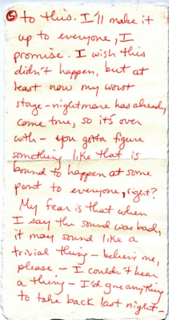 ⑤ to this. I'll make it
up to everyone, I
promise. I wish this
didn't happen, but at
least now my worst
stage-nightmare has already
come true, so it's over
with - you gotta figure
something like that is
bound to happen at some
point to everyone, right?
My fear is that when
I say the sound was bad,
it may sound like a
trivial thing - believe me,
please - I couldn't hear
a thing - I'd give anything
to take back last night -